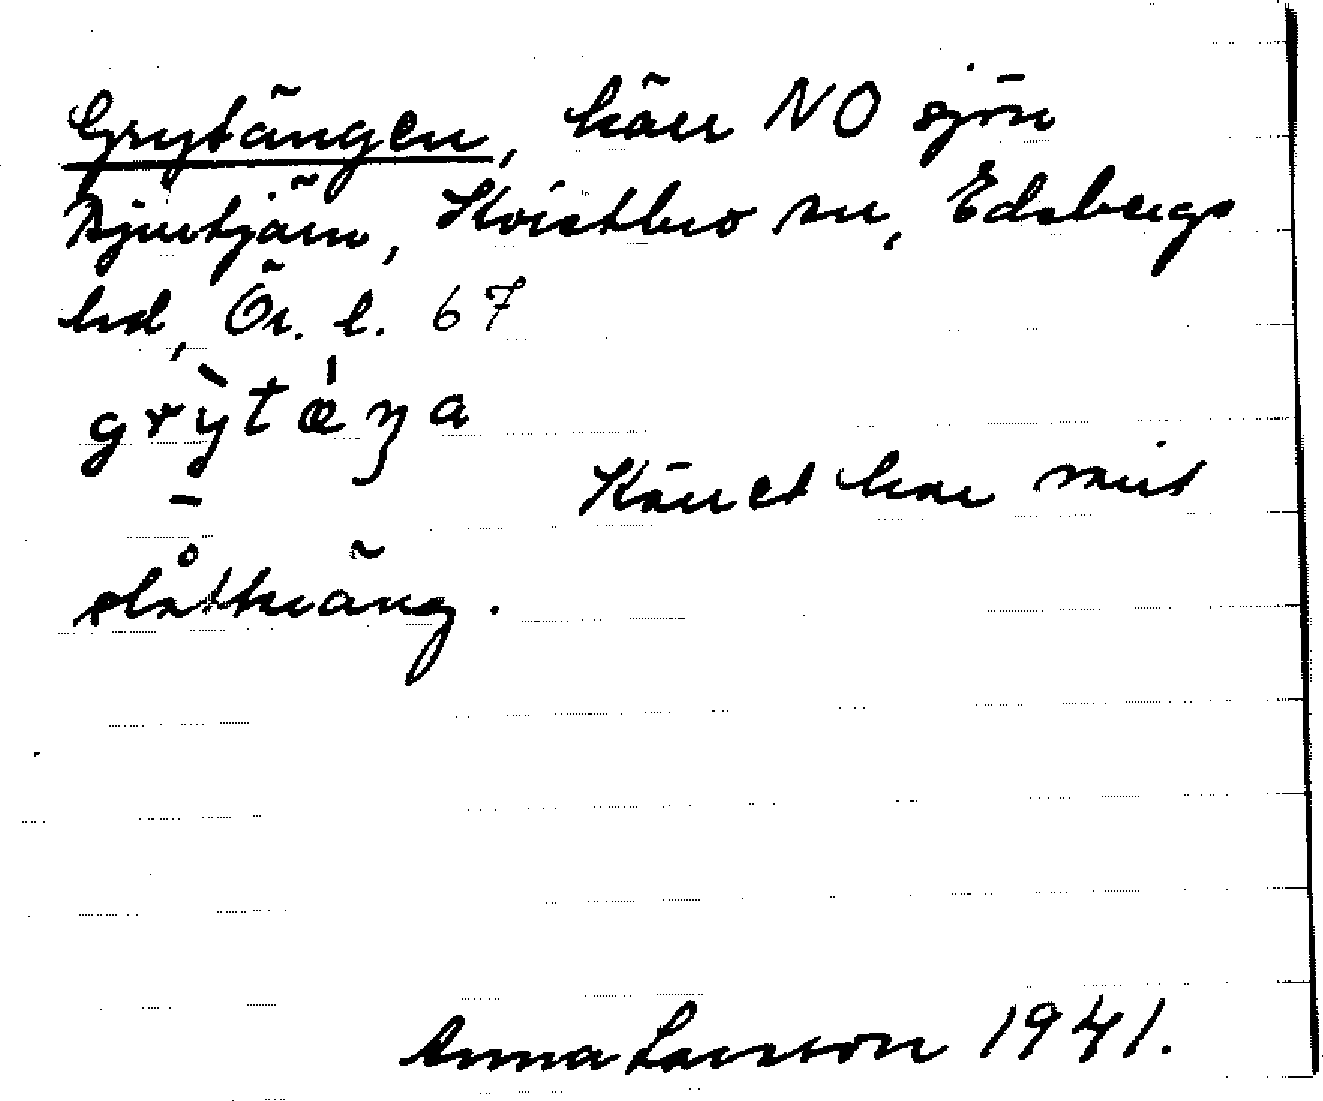 Grytängen, kärr NO sjön
Bjurtjärn, Kvistbro sn, Edsbergs
hd, Ör. l. 67
grỳtǽŋa
Kärret har varit
slåtteräng.
Anna Larsson 1941.